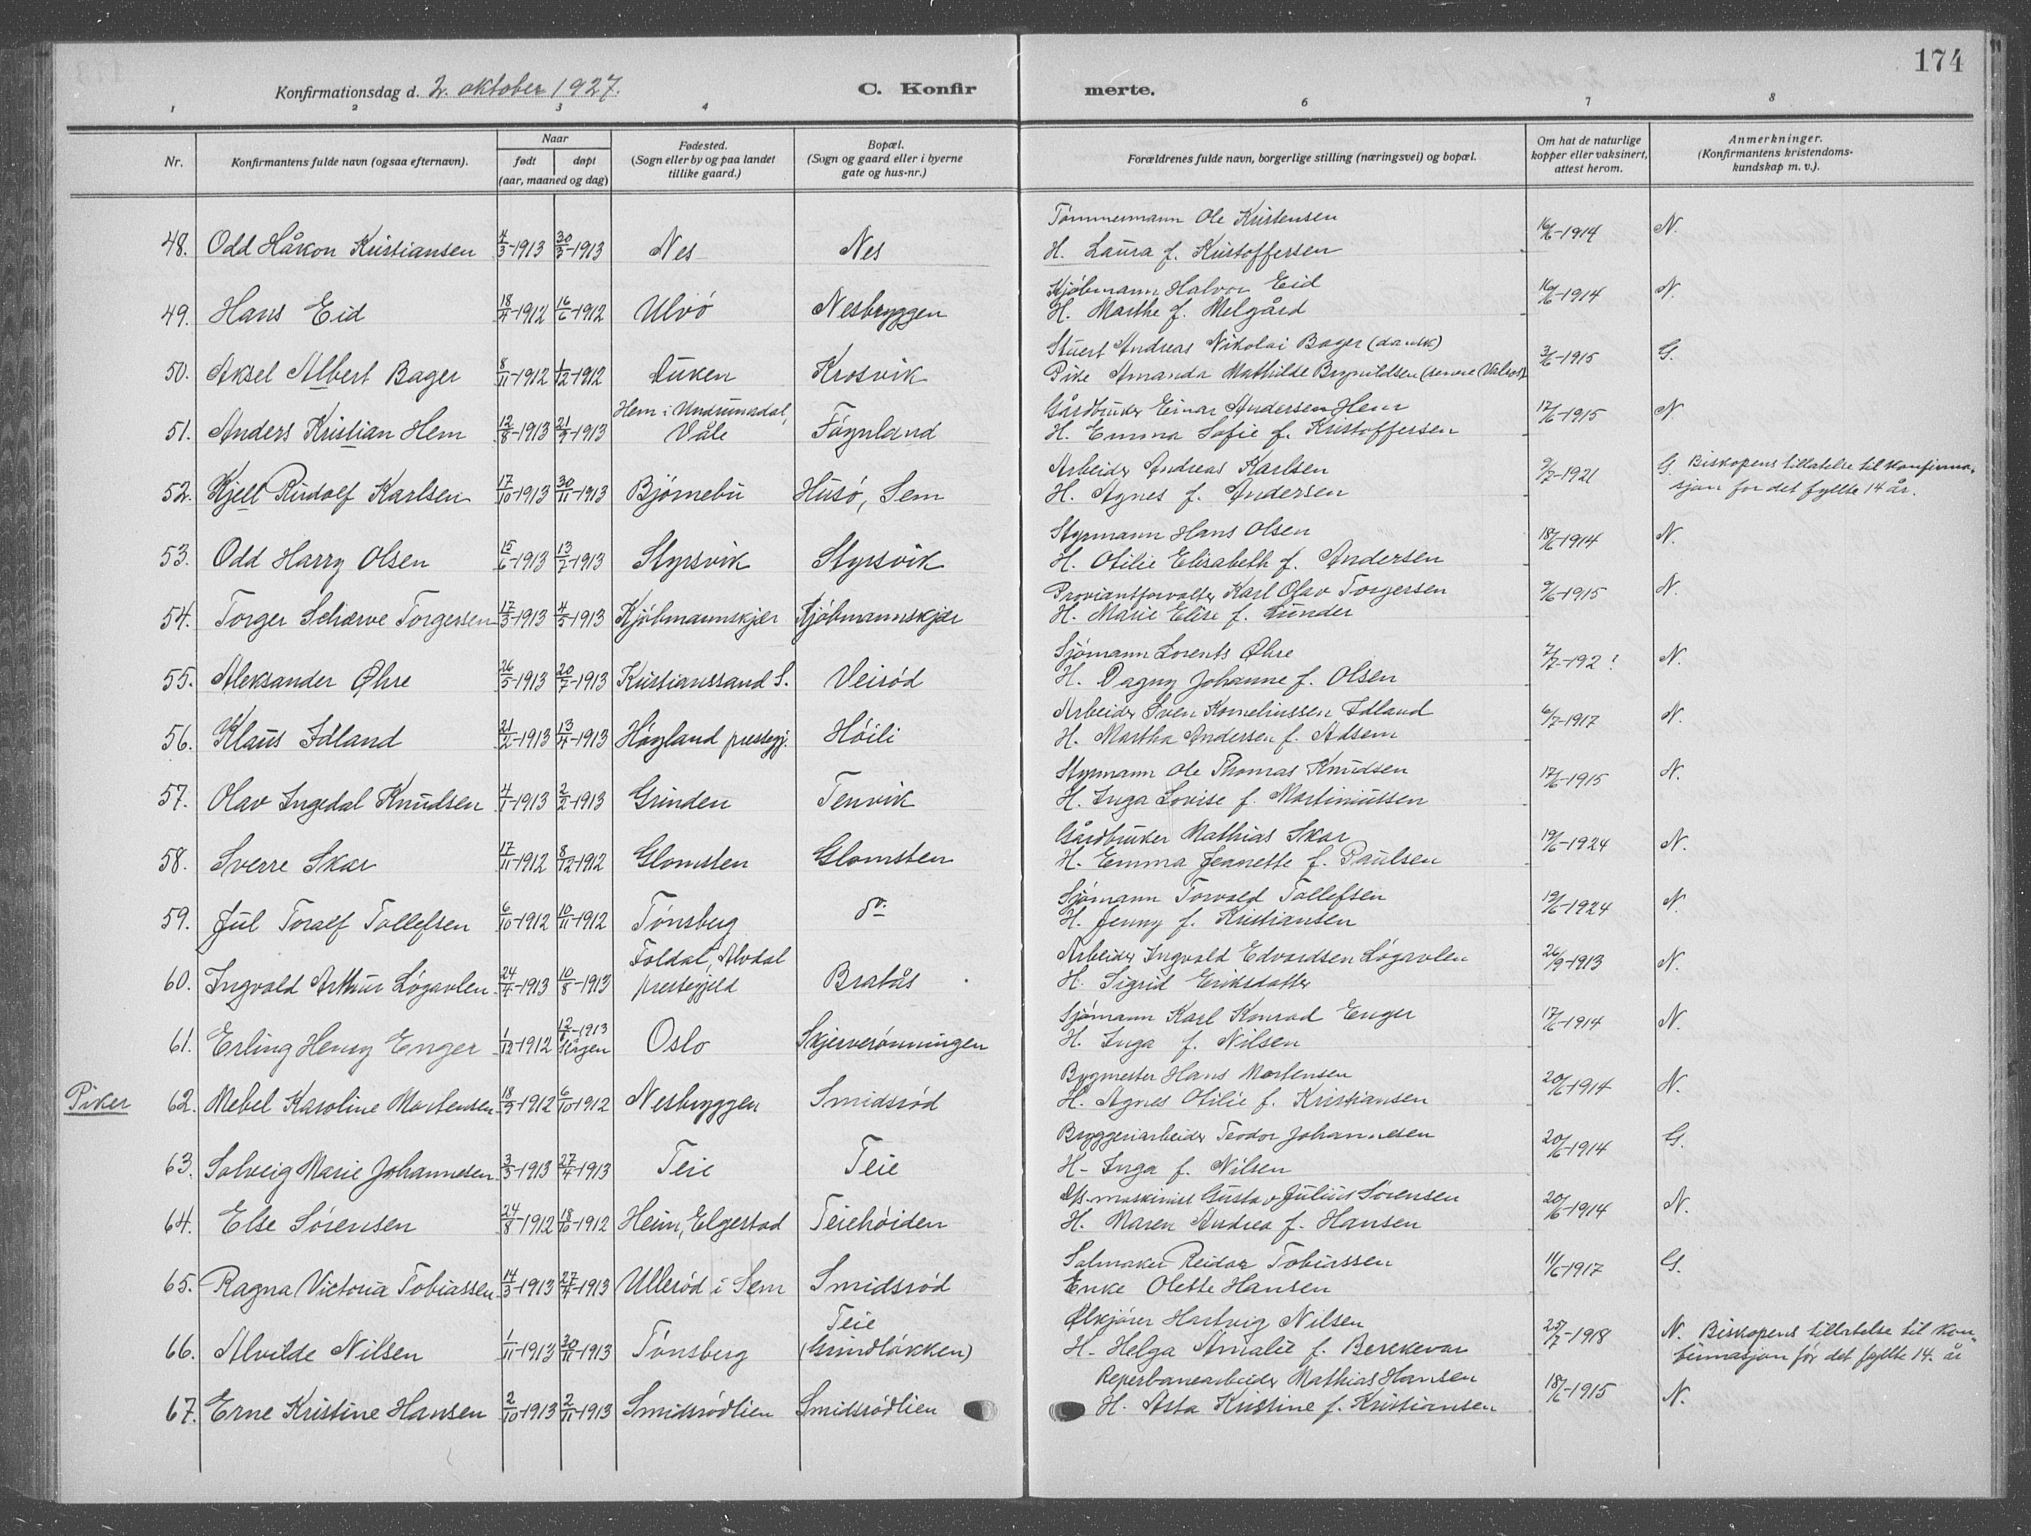 174
Konfirmationsdag d. 2. oktober 1927.
C. Konfirmerte.
1 2 3 4 6 7 8
Nr. Konfirmantens fulde navn (ogsaa efternavn). Naar født døpt (aar, maaned og dag) Fødested. (Sogn eller by og paa landet tillike gaard.) Bopæl. (Sogn og gaard eller i byerne gate og hus-nr.) Forældrenes fulde navn, borgerlige stilling (næringsvei) og bopæl. Om hat de naturlige kopper eller vaksinert, attest herom. Anmerkninger. (Konfirmantens kristendomskundskap m. v.).
48. Odd Håkon Kristiansen 4/3-1913 30/3-1913 Nes Nes Tømmermann Ole Kristensen 16/6-1914 N.
H. Laura f. Kristoffersen
49. Hans Eid 18/4-1912 16/6-1912 Ulvö Nesbryggen Kjøbmann Halvor Eid 16/6-1914 N.
H. Marthe f. Melgård
50. Aksel Albert Bager 8/11-1912 1/12-1912 Duken Krosvik Stuert Andreas Nikolai Bager (dansk) 3/6-1915 G.
Pike Amanda Mathilde Brynildsen
51. Anders Kristian Hem 12/8-1913 21/9-1913 Hem i Undrumsdal, Våle Føynland Gårdbruker Einar Andersen Hem 17/6-1915 N.
H. Emma Sofie f. Kristoffersen
52. Kjell Rudolf Karlsen 17/10-1913 30/11-1913 Bjørnebu Husö, Sem Arbeider Andreas Karlsen 9/7-1921 G. Biskopens tillatelse til konfirma-
H. Agnes f. Andersen sjon for det fyllte 14 år.
53. Odd Harry Olsen 15/6-1913 13/7-1913 Styrsvik Styrsvik Styrmann Hans Olsen 18/6-1914 N.
H. Otilie Elisabeth f. Andersen
54. Torger Scherve Torgersen 17/3-1913 4/5-1913 Kjøbmannskjær Kjøbmannskjær Proviantforvalter Karl Olav Torgersen 9/6-1915 N.
H. Marie Elise f. Lunder
55. Aleksander Øhre 26/5-1913 20/7-1913 Kristianssand S. Veirød Sjømann Lorents Øhre 7/7-192 N.
H. Dagny Johanne f. Olsen
56. Klaus Idland 21/2-1913 13/4-1913 Högland prestegj. Höili Arbeider Sven Korneliussen Idland 6/7-1917 N.
H. Martha Andersen f. Adsem
57. Olav Ingedal Knudsen 4/1-1913 2/2-1913 Grinden Tenvik Styrmann Ole Thomas Knudsen 17/6-1915 N.
H. Inga Lovise f. Martiniussen
58. Sverre Skar 17/11-1912 8/12-1912 Glomsten Glomsten Gårdbruker Mathias Skar 19/6-1924 N.
H. Emma Jeanette f. Paulsen
59. Jul Toralf Tollefsen 6/10-1912 10/11-1912 Tönsberg do Sjømann Torvald Tollefsen 19/6-1924 N.
H. Jenny f. Kristiansen
60. Ingvald Arthur Løgavlen 24/4-1913 10/8-1913 Foldal, Alvdal prestegjeld Bratås Arbeider Ingvald Edvardsen Løgavlen 26/9-1913 N.
H. Sigrid Eriksdatter
61. Erling Henry Enger 1/12-1912 12/8-1913 Skagen Oslo Skjerverønningen Sjømann Karl Konrad Enger 17/6-1914 N.
H. Inga f. Nilsen
Piker 62. Mebel Karoline Mortensen 18/9-1912 6/10-1912 Nesbryggen Smidsrød Bygmester Hans Mortensen 20/6-1914 N.
H. Agnes Otilie f. Kristiansen
63. Solveig Marie Johannesen 3/3-1913 27/4-1913 Teie Teie Bryggeriarbeider Teodor Johannesen 20/6-1914 G.
H. Inga f. Nilsen
64. Else Sørensen 24/8-1912 18/10-1912 Heim, Elgestad Teiehöiden D/s. maskinist Gustav Julius Sørensen 20/6-1914 N.
H. Maren Andrea f. Hansen
65. Ragna Victoria Tobiassen 14/3-1913 27/4-1913 Ullerød i Sem Smidsrød Salmaker Reidar Tobiassen 11/6-1917 G.
Enke Olette Hansen
66. Alvilde Nilsen 1/11-1913 30/11-1913 Tönsberg Teie (Grindløkken) Ølkjører Hartvig Nilsen 25/7-1918 N. Biskopens tillatelse til kon-
H. Helga Amalie f. Berkevar firmasjon før det fyllte 14. år
67. Erne Kristine Hansen 2/10-1913 2/11-1913 Smidsrødlien Smidsrødlien Reperbanearbeider Mathias Hansen 18/6-1915 N.
H. Asta Kristine f. Kristiansen